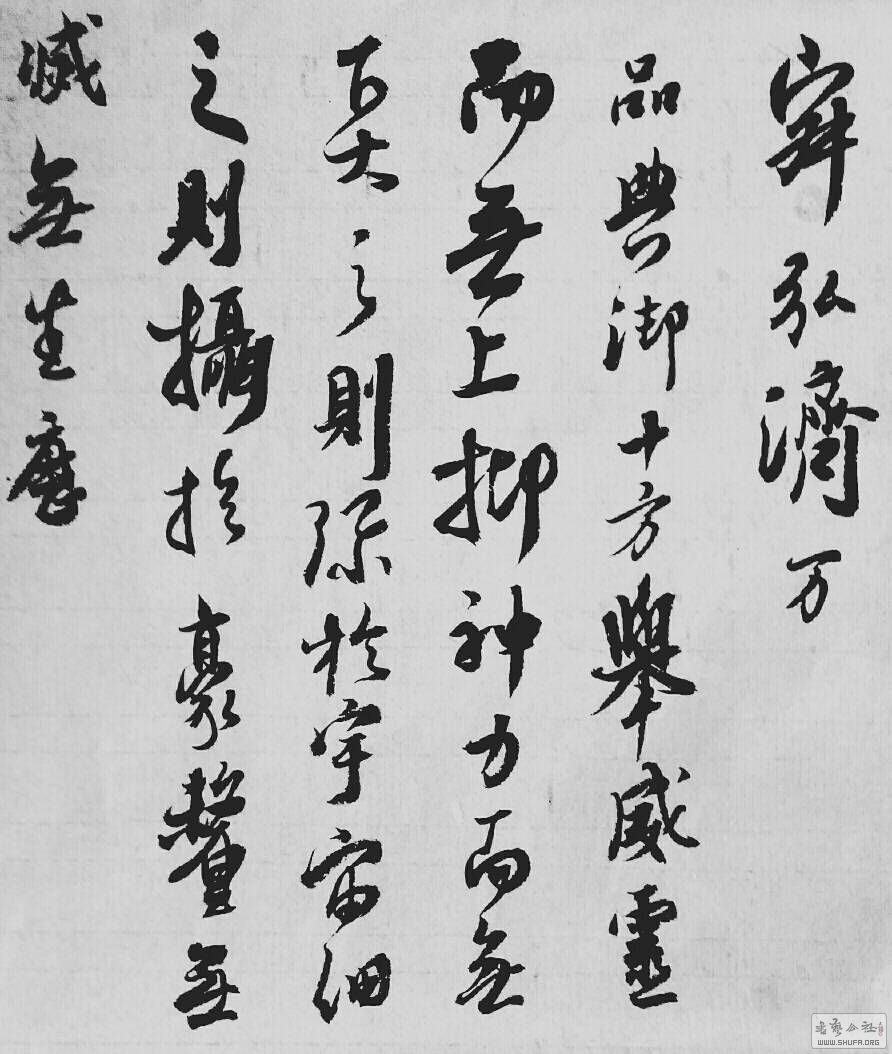 宰弘濟万
品典御十方舉威靈
而無上抑神力而無
下大之則弥於宇宙細
之則攝於豪釐無
滅無生歷
書藝公社
WWW.SHUFA.ORG